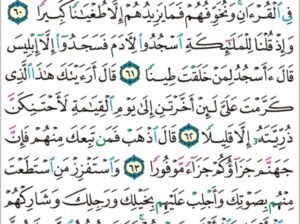 فِى ٱلْقُرْءَانِ وَنُخَوِّفُهُمْ فَمَا يَزِيدُهُمْ إِلَّا طُغْيَٰنًا كَبِيرًا ٦٠
وَإِذْ قُلْنَا لِلْمَلَٰٓئِكَةِ ٱسْجُدُوا۟ لِءَادَمَ فَسَجَدُوٓا۟ إِلَّآ إِبْلِيسَ
قَالَ ءَأَسْجُدُ لِمَنْ خَلَقْتَ طِينًا ٦١ قَالَ أَرَءَيْتَكَ هَٰذَا ٱلَّذِى
كَرَّمْتَ عَلَىَّ لَئِنْ أَخَّرْتَنِ إِلَىٰ يَوْمِ ٱلْقِيَٰمَةِ لَأَحْتَنِكَنَّ
ذُرِّيَّتَهُۥٓ إِلَّا قَلِيلًا ٦٢ قَالَ ٱذْهَبْ فَمَن تَبِعَكَ مِنْهُمْ فَإِنَّ
جَهَنَّمَ جَزَآؤُكُمْ جَزَآءً مَّوْفُورًا ٦٣ وَٱسْتَفْزِزْ مَنِ ٱسْتَطَعْتَ
مِنْهُم بِصَوْتِكَ وَأَجْلِبْ عَلَيْهِم بِخَيْلِكَ وَرَجِلِكَ وَشَارِكْهُمْ